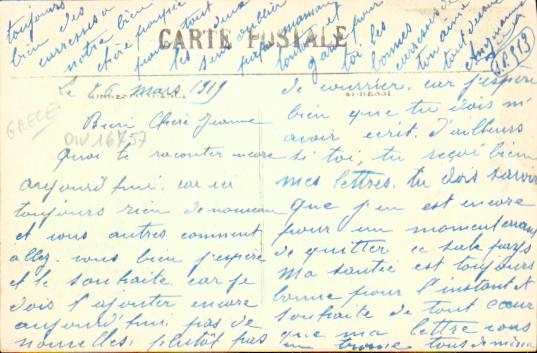 CARTE POSTALE
GRECE
Le 26 mars 1919
Bien Chère Jeanne
Quoi te raconter encore
aujourd'hui. car ici
toujours rien de nouveau
et vous autres comment
allez vous bien j'espère
et le souhaite. car je
dois l'ajouter encore
aujourd'hui pas de
nouvelles. plutôt pas
de courrier. car j'espère
bien que tu dois m'
avoir ecrit. D'ailleurs
si toi, tu reçoi bien
mes lettres. tu dois savoir
que j'en est encore
pour un moment avant
de quitter ce sale pays
Ma santée est toujours
bonne pour l'instant et
souhaite de tout cœur
que ma lettre vous
trouve tous de même
toujours
bien des
caresses a
notre bien
chère poupée
tout
les deux
sans oublier
maman
et
pour
toi les
bonnes
caresses de
ton ami
tout devoué